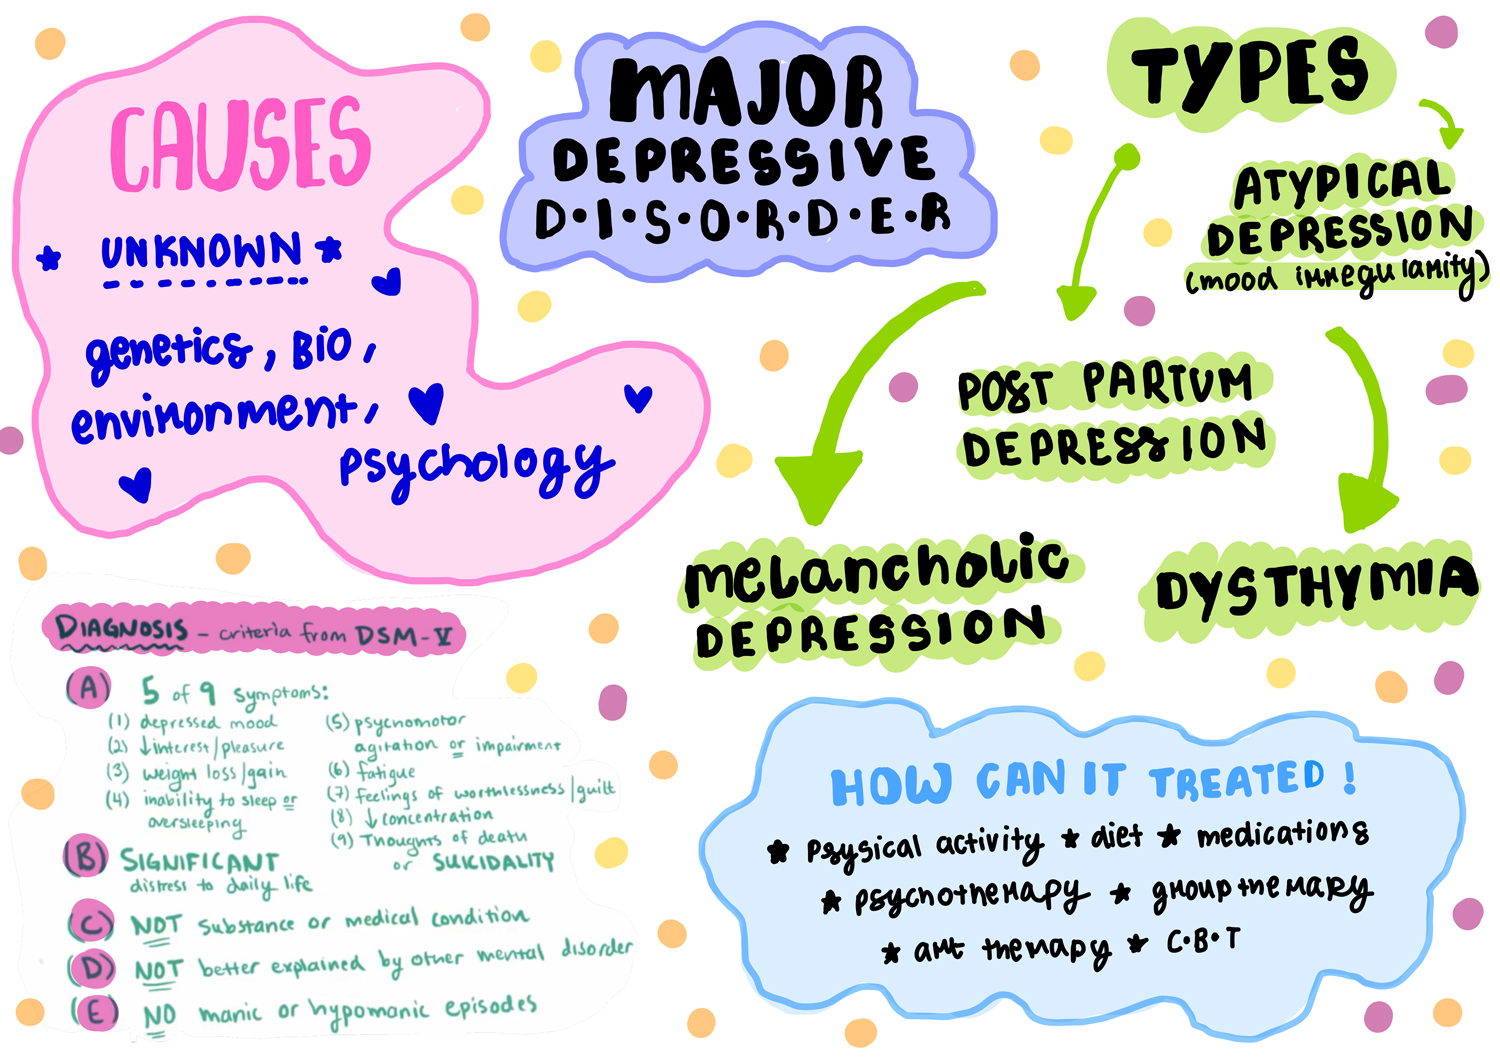 MAJOR
DEPRESSIVE
D•I•S•O•R•D•E•R
CAUSES
★ UNKNOWN ★
genetics, BIO,
environment,
psychology
TYPES
ATYPICAL
DEPRESSION
(mood irregularity)
POST PARTUM
DEPRESSION
MELANCHOLIC
DEPRESSION
DYSTHYMIA
DIAGNOSIS - criteria from DSM-V
(A) 5 of 9 symptoms:
(1) depressed mood
(2) ↓interest/pleasure
(3) weight loss/gain
(4) inability to sleep or
oversleeping
(5) psycnomotor
agitation or impairment
(6) fatigue
(7) Feelings of worthlessness/guilt
(8) ↓concentration
(9) Thougnts of death
or SUICIDALITY
(B) SIGNIFICANT
distress to daily life
(C) NOT substance or medical condition
(D) NOT better explained by other mental disorder
(E) NO manic or hypomanic episodes
HOW CAN IT TREATED !
★ psysical activity ★ diet ★ medications
★ psychotherapy ★ group therapy
★ art therapy ★ C•B•T